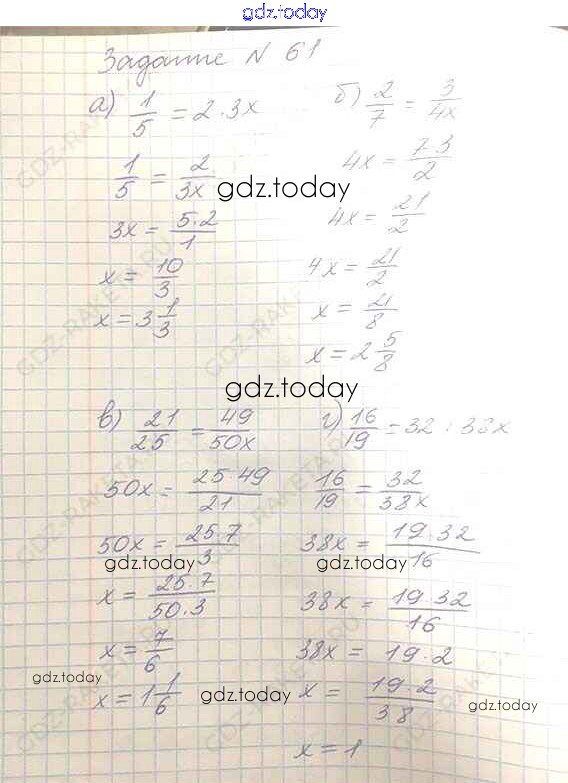 gdz.today
Задание № 61
а) 1/5 = 2 · 3x
1/5 = 2/3x
3x = 5·2/1
x = 10/3
x = 3 1/3
б) 2/7 = 3/4x
4x = 7·3/2
4x = 21/2
4x = 21/2
x = 21/8
x = 2 5/8
gdz.today
gdz.today
в) 21/25 = 49/50x
50x = 25·49/21
50x = 25·7/3
x = 25·7/50·3
x = 7/6
x = 1 1/6
г) 16/19 = 32 : 38x
16/19 = 32/38x
38x = 19·32/16
38x = 19·32/16
38x = 19·2
x = 19·2/38
x = 1
gdz.today
gdz.today
gdz.today
gdz.today
gdz.today
GDZ-RAKETA.RU
GDZ-RAKETA.RU
GDZ-RAKETA.RU